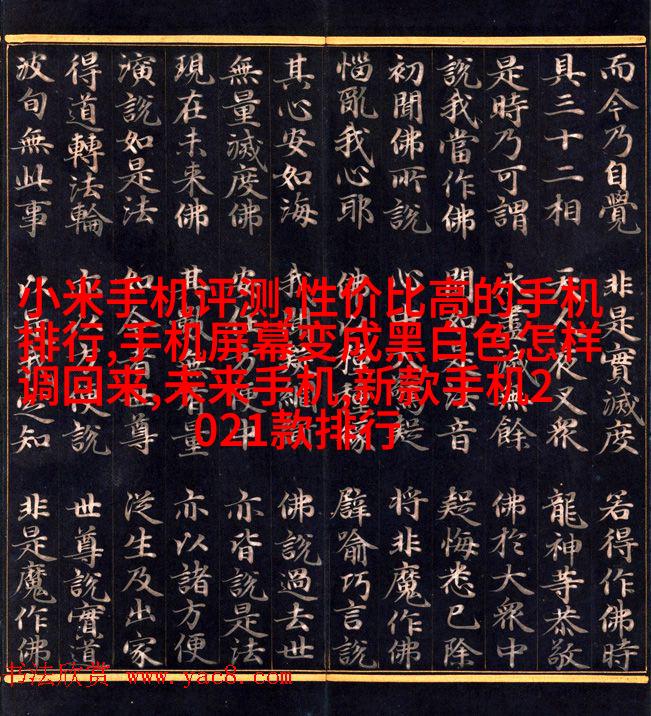 而今乃自覺 非是實滅度 若得作佛時
具三十二相 夜叉眾 龍神等恭敬
是時乃可謂 永盡滅無餘 佛於大眾中
說我當作佛 聞如是法音 疑悔悉已除
初聞佛所說 心中大疑 將非魔作佛
惱亂我心耶 佛種種 譬喻巧言說
其心安如海 我疑網 佛說過去世
無量滅度佛 安便中 亦皆說是法
現在未來佛 其無量 亦以諸方便
演說如是法 如今者世尊 從生及出家
得道轉法輪 便說 世尊說實道
波旬無此事 以是我知 非是魔作佛
小米手机评测,性价比高的手机
排行,手机屏幕变成黑白色怎样
调回来,未来手机,新款手机2
021款排行
书法欣赏 www.yac8.com